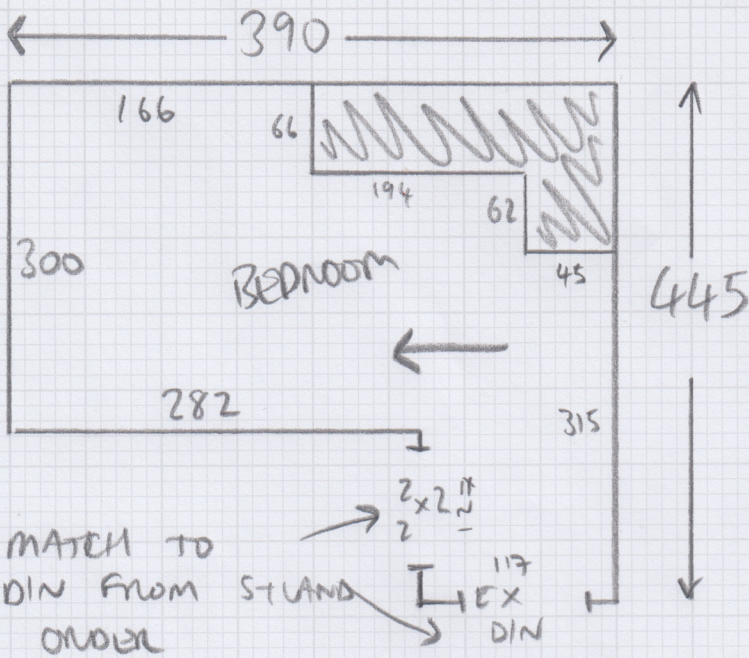 390
166
66
194
62
45
300
BEDROOM
445
282
315
2 x 2
2
117
EX
DIN
MATCH TO
DIN FROM S+LAND
ORDER